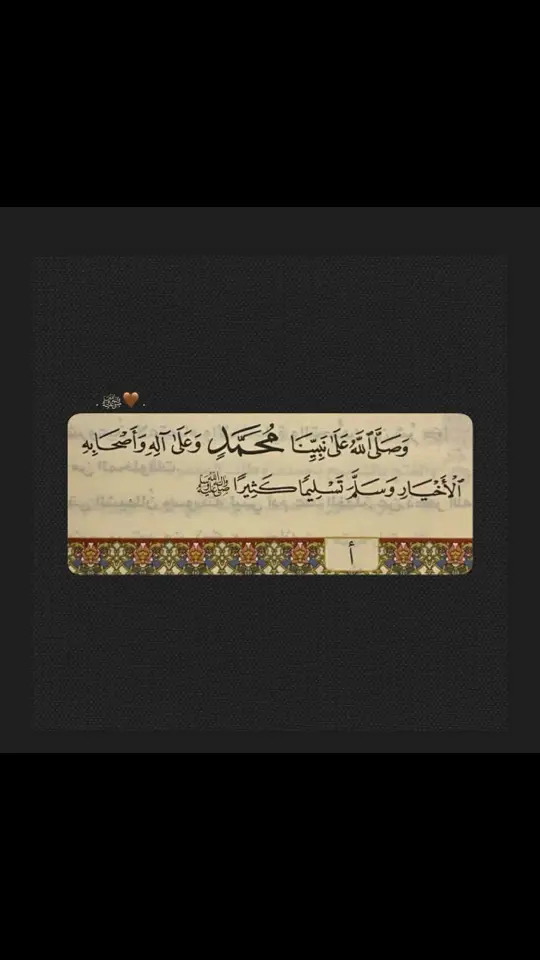 . ﷺ🤎 .
وَصَلَّى ٱللَّهُ عَلَىٰ نَبِيِّنَا مُحَمَّدٍ وَعَلَىٰ آلِهِ وَأَصْحَابِهِ
ٱلْأَخْيَارِ وَسَلَّمَ تَسْلِيمًا كَثِيرًا ﷺ
أ